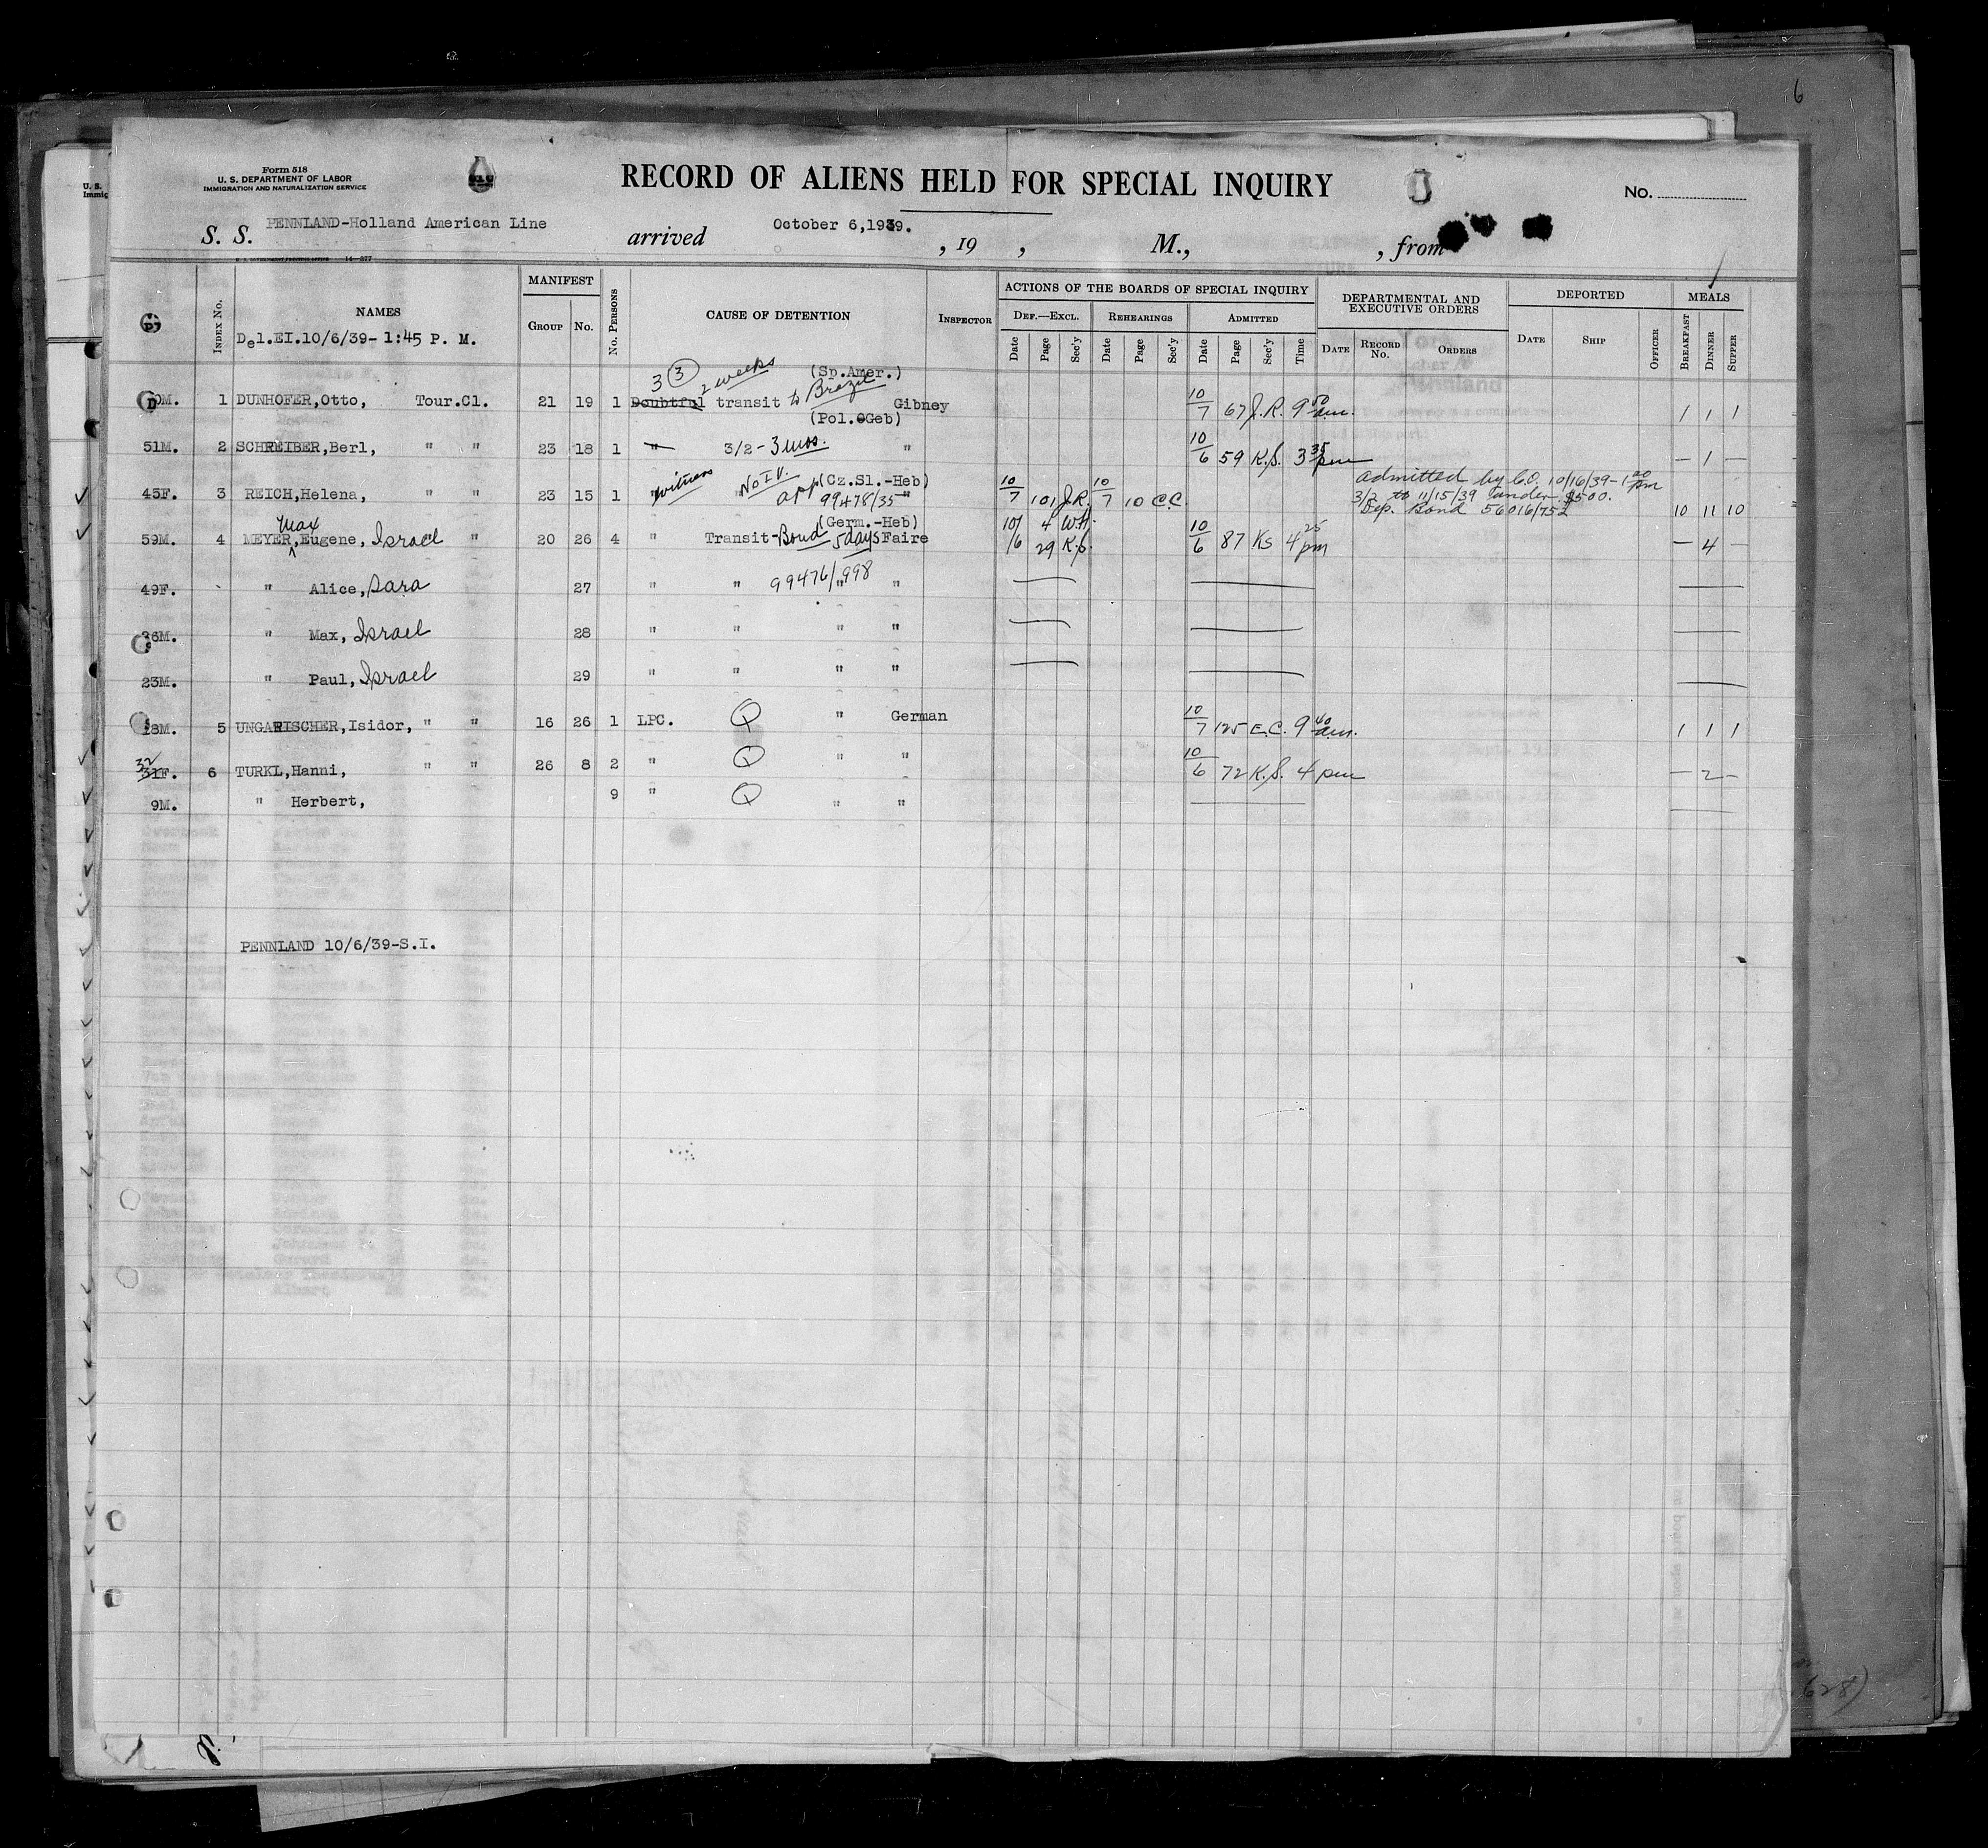 6
Form 518
U. S. DEPARTMENT OF LABOR
IMMIGRATION AND NATURALIZATION SERVICE
RECORD OF ALIENS HELD FOR SPECIAL INQUIRY
No.
S. S. PENNLAND-Holland American Line arrived October 6,1939. , 19 , M., , from
MANIFEST ACTIONS OF THE BOARDS OF SPECIAL INQUIRY DEPARTMENTAL AND EXECUTIVE ORDERS DEPORTED MEALS
Index No. NAMES Group No. No. Persons CAUSE OF DETENTION Inspector Def.—Excl. Rehearings Admitted
Date Page Sec'y Date Page Sec'y Date Page Sec'y Time Date Record No. Orders Date Ship Officer Breakfast Dinner Supper
Del.EI.10/6/39-1:45 P. M.
3 (3) 2 weeks (Sp.Amer.)
1 DUNHOFER,Otto, Tour.Cl. 21 19 1 Doubtful transit to Brazil Gibney 10/7 67 J.R. 9 50 am. 1 1 1
(Pol.Geb)
51M. 2 SCHREIBER,Berl, " " 23 18 1 " 3/2 - 3 mos. " 10/6 59 K.S. 3 35 pm — 1 —
witness No I.V. (Cz.Sl.-Heb)
45F. 3 REICH,Helena, " " 23 15 1 " " app 99478/35 " 10/7 101 J.R. 10/7 10 C.C. Admitted by C.O. 10/16/39-1 20 pm
3/2 to 11/15/39 under $500.
Dep. Bond 56016/752 10 11 10
Max (Germ.-Heb)
59M. 4 MEYER,Eugene, Israel " " 20 26 4 " Transit-Bond 5 days Faire 10/6 4 W.H. 29 K.S. 10/6 87 KS 4 25 pm — 4 —
49F. " Alice, Sara 27 " " 99476/998 " "
36M. " Max, Israel 28 " " " "
23M. " Paul, Israel 29 " " " "
18M. 5 UNGARISCHER,Isidor, " " 16 26 1 LPC. Q " German 10/7 125 E.C. 9 40 am. 1 1 1
32
31F. 6 TURKL,Hanni, " " 26 8 2 " Q " " 10/6 72 K.S. 4 pm — 2 —
9M. " Herbert, 9 " Q " "
PENNLAND 10/6/39-S.I.
628)